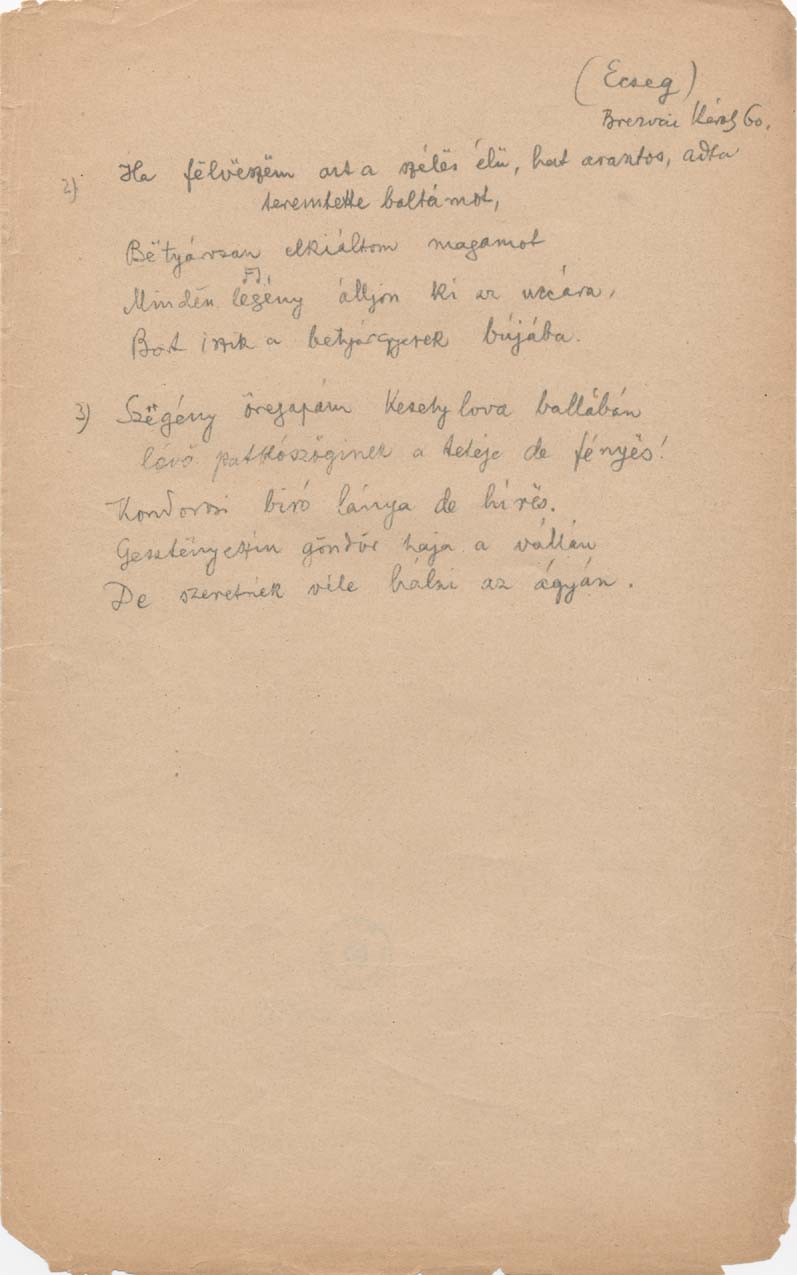 (Ecseg)
Brezvai Károly 60.
2) Ha fëlvëszëm azt a szélës élü, hat arasztos, adta
teremtette baltámot,
Bëtyárosan elkiáltom magamot
Mindën legény álljon ki az uccára,
Bort iszik a betyárgyerek bújába.
3) Szëgény öregapám Kesely lova ballábán
lévő patkószöginek a teteje de fényës!
Kondorosi biró lánya de hírës.
Gesztenyeszín göndör haja a vállán
De szeretnék véle hálni az ágyán.